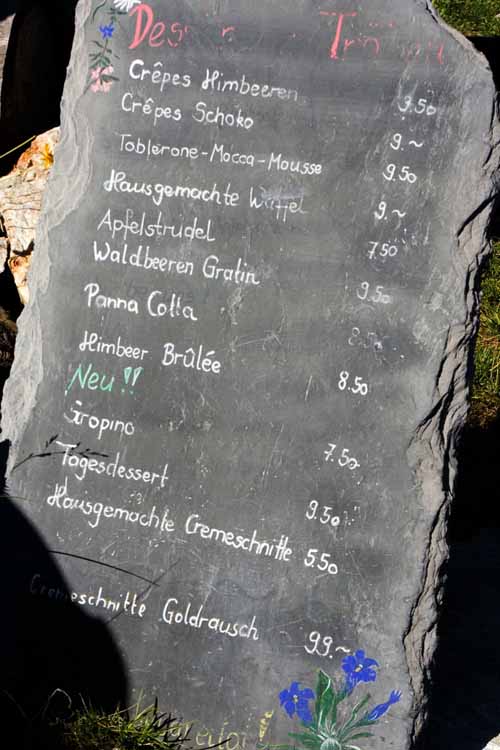 Crêpes Himbeeren 9.50
Crêpes Schoko 9.~
Toblerone-Mocca-Mousse 9.50
Hausgemachte Waffel 9.~
Apfelstrudel 7.50
Waldbeeren Gratin 9.50
Panna Cotta 8.50
Himbeer Brûlée 8.50
Neu!!
Gropino 7.50
Tagesdessert 9.50
Hausgemachte Cremeschnitte 5.50
Cremeschnitte Goldrausch 99.~